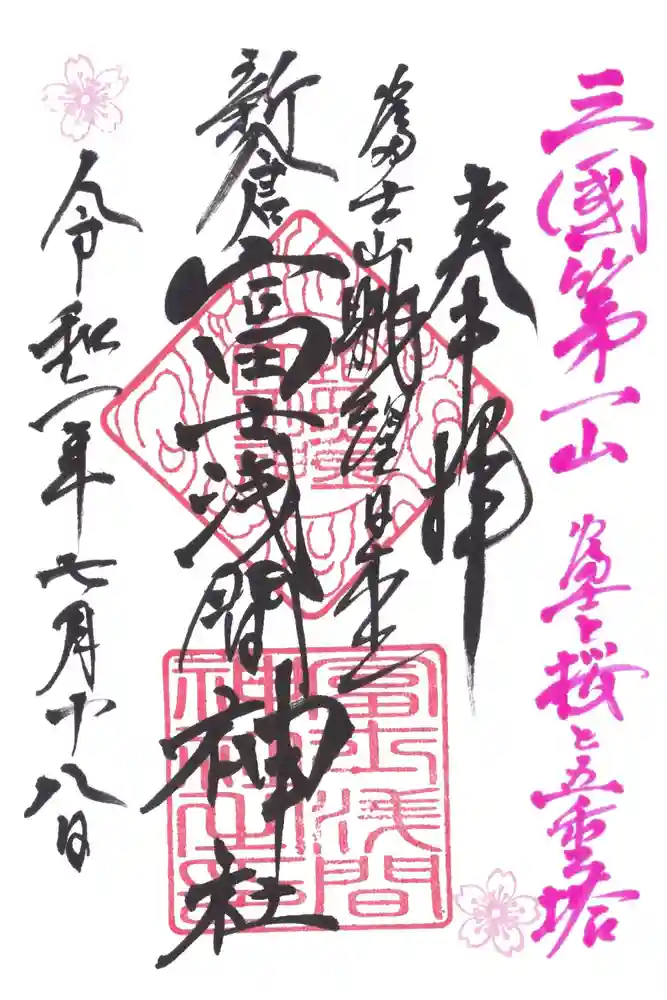 三國第一山 富士と桜と五重塔
奉拝
富士山眺望日本一
新倉富士浅間神社
令和一年七月十八日
富士浅間
神社之印